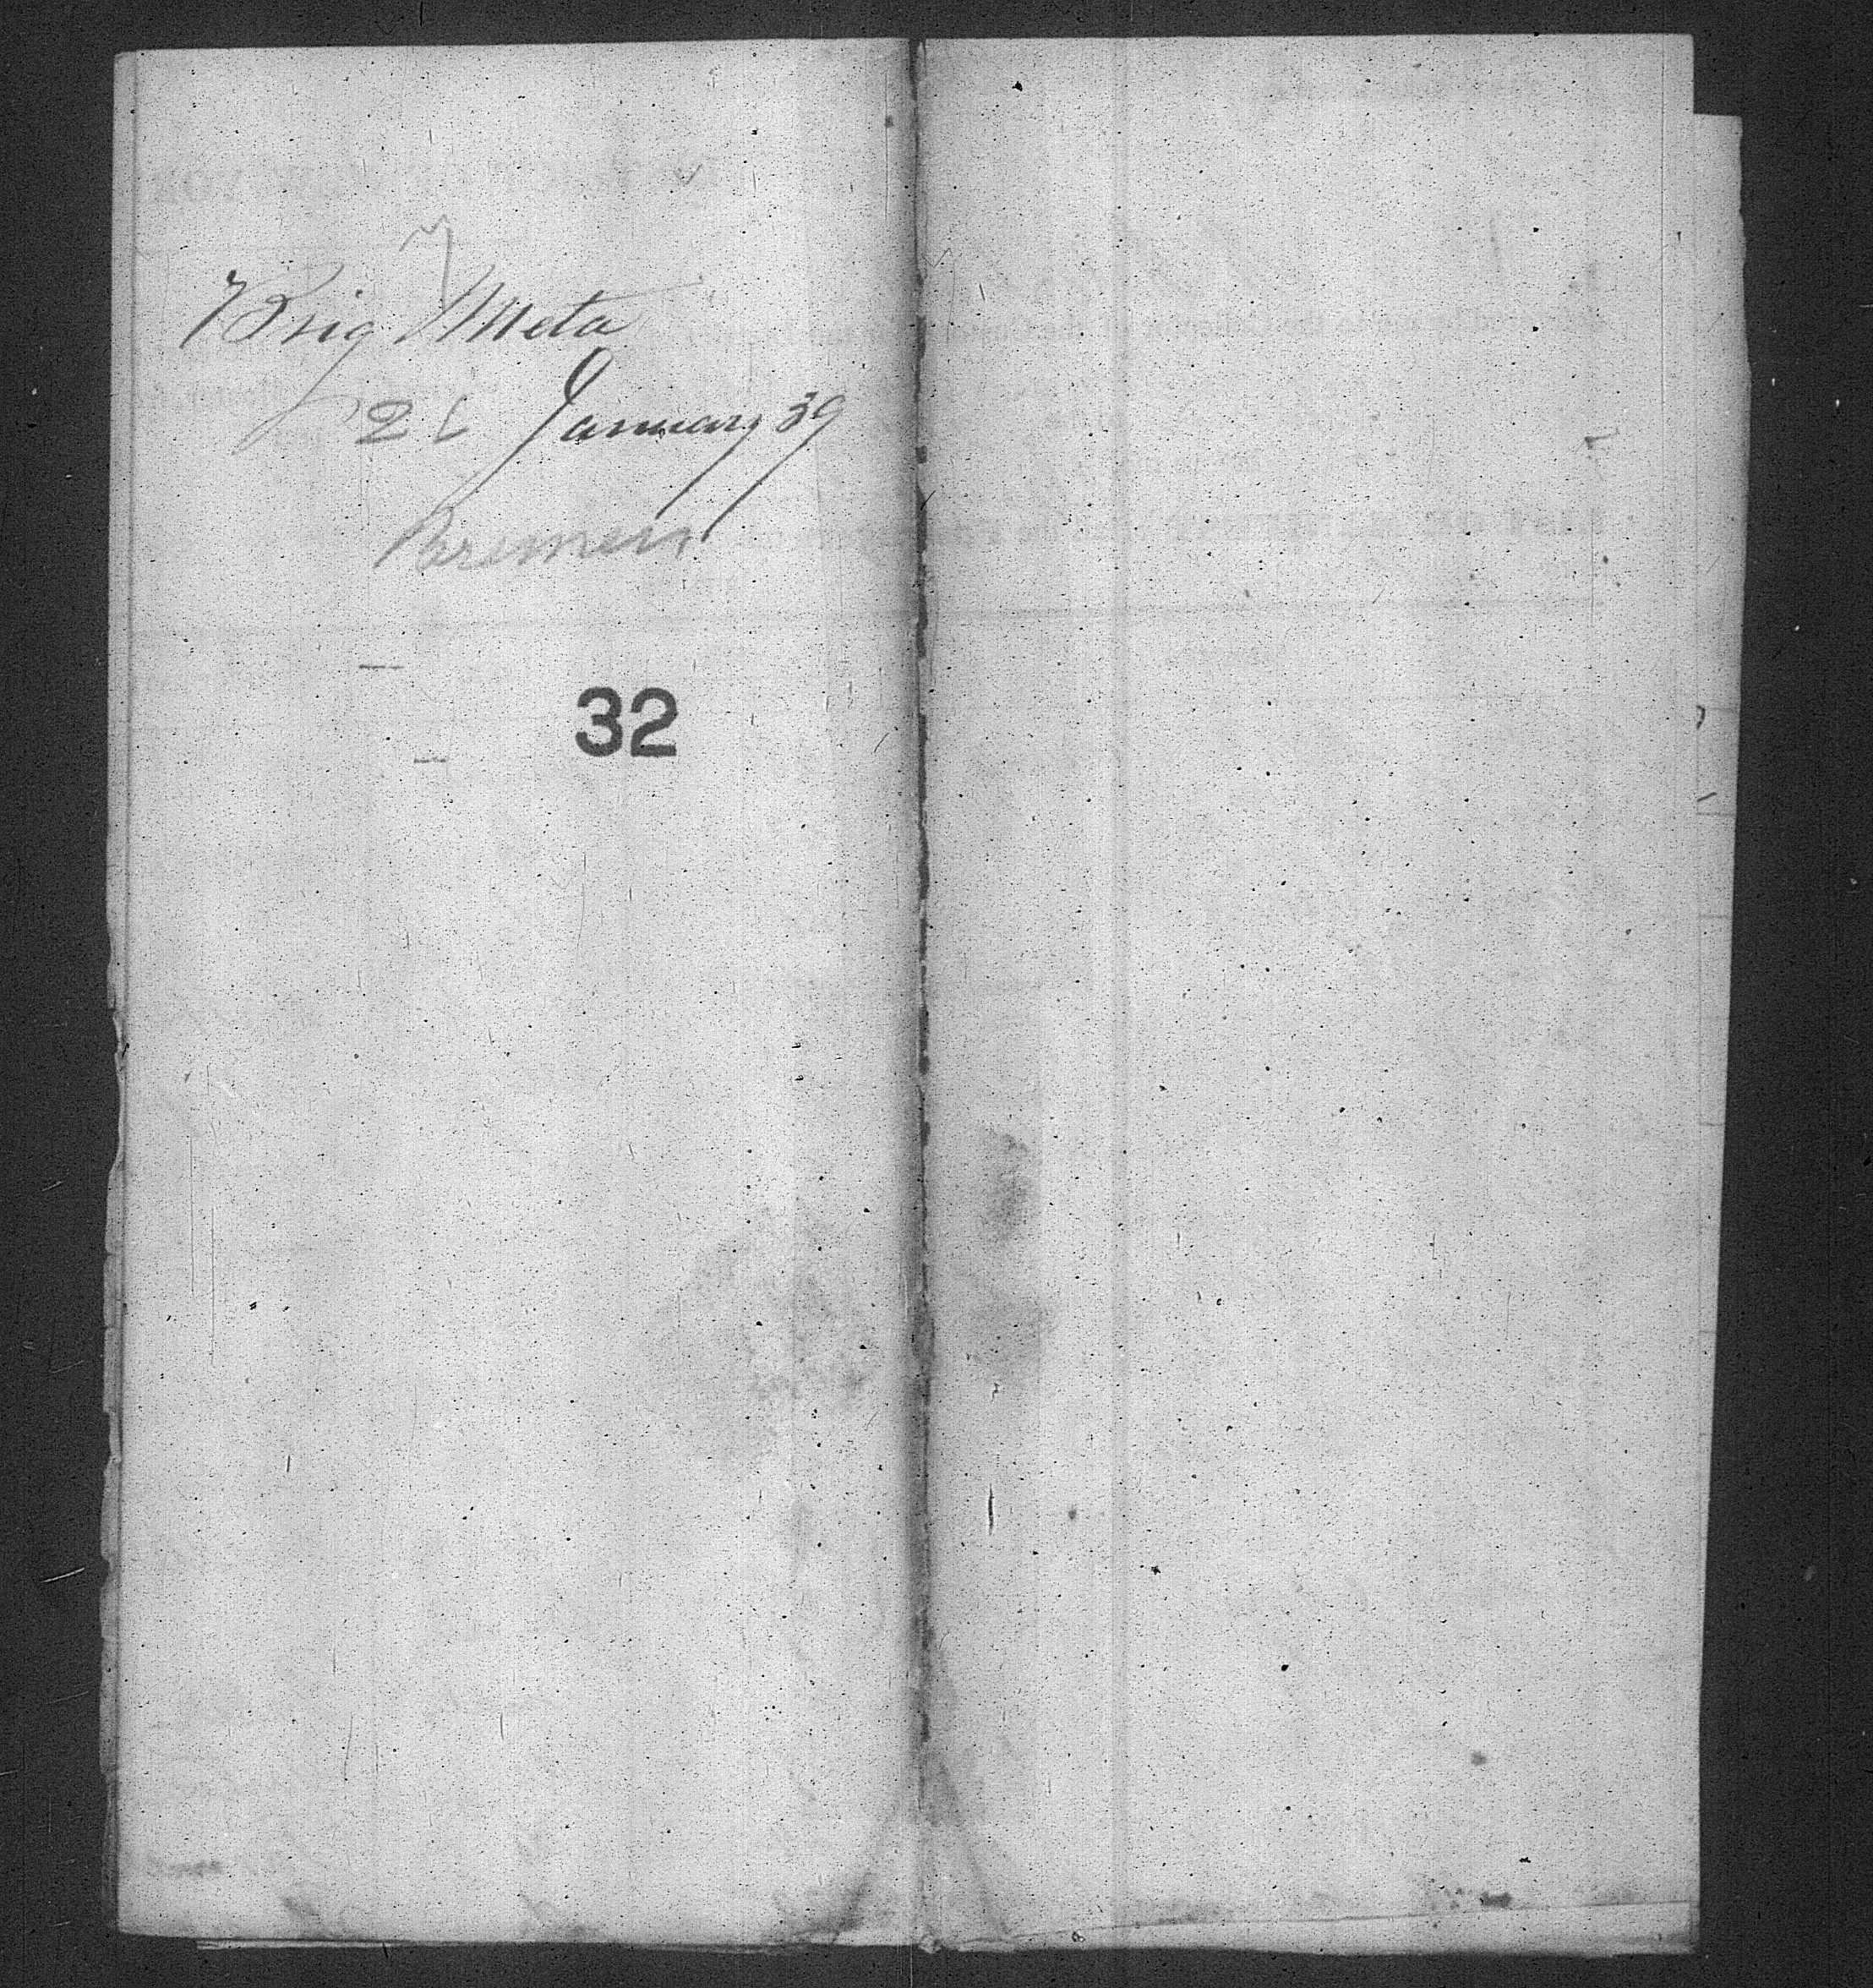 Brig Meta
26 January 39
Bremen
32